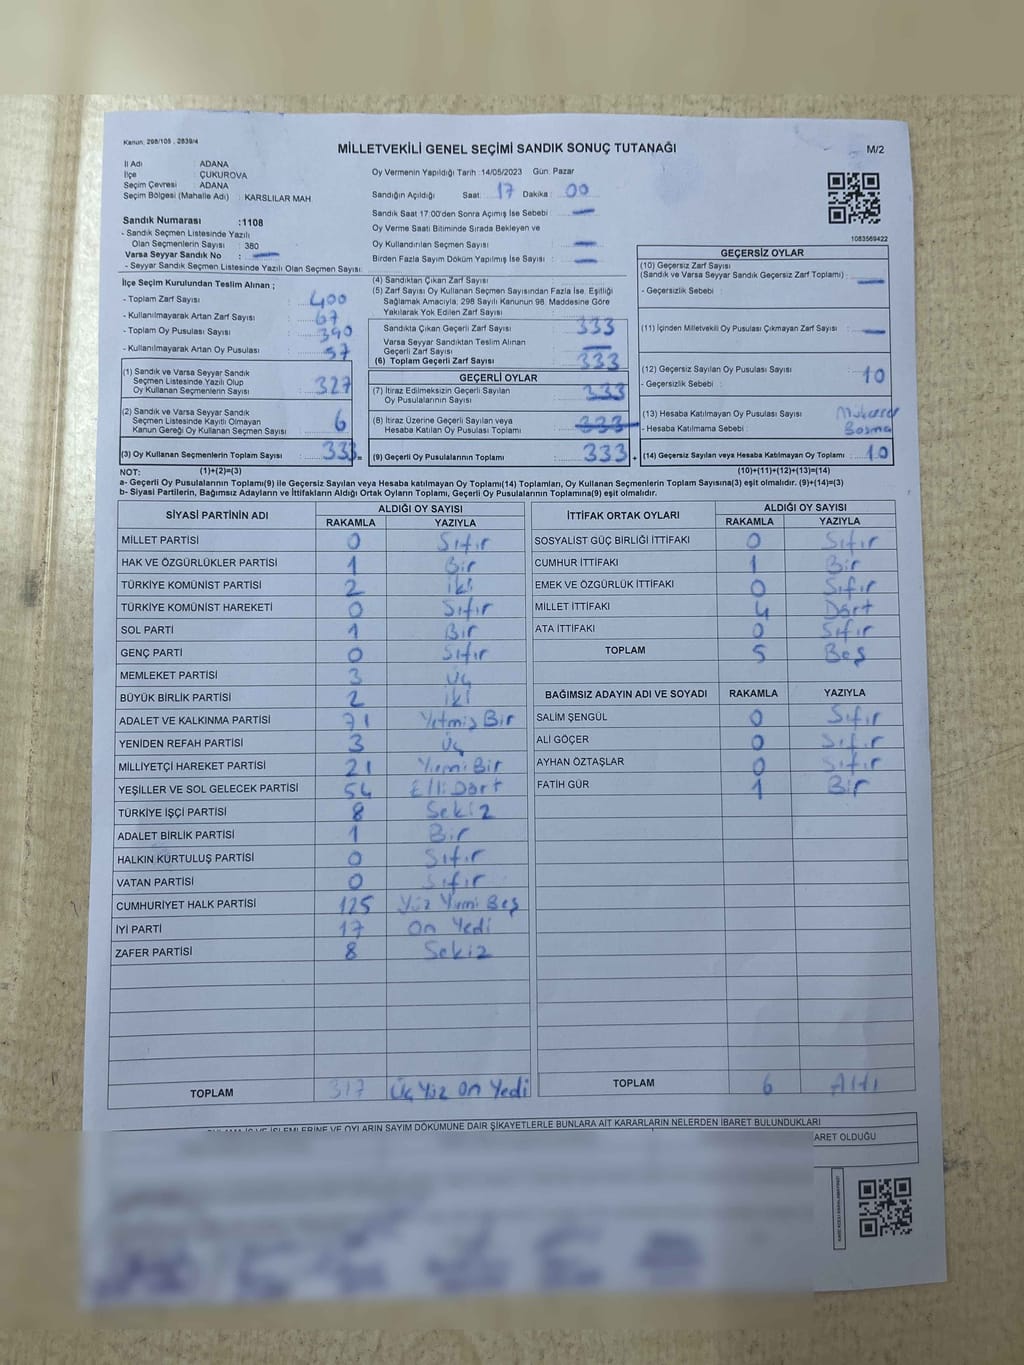 Kanun: 298/105 , 2839/4
MİLLETVEKİLİ GENEL SEÇİMİ SANDIK SONUÇ TUTANAĞI
M/2
İl Adı ADANA
İlçe ÇUKUROVA
Seçim Çevresi ADANA
Seçim Bölgesi (Mahalle Adı) : KARSLILAR MAH
Oy Vermenin Yapıldığı Tarih :14/05/2023 Gün: Pazar
Sandığın Açıldığı Saat: 17 Dakika : 00
Sandık Saat 17:00'den Sonra Açımış İse Sebebi : —
Oy Verme Saati Bitiminde Sırada Bekleyen ve
Oy Kullandırılan Seçmen Sayısı : —
Birden Fazla Sayım Döküm Yapılmış İse Sayısı : —
1083569422
Sandık Numarası :1108
- Sandık Seçmen Listesinde Yazılı
Olan Seçmenlerin Sayısı : 380
Varsa Seyyar Sandık No : —
- Seyyar Sandık Seçmen Listesinde Yazılı Olan Seçmen Sayısı:
İlçe Seçim Kurulundan Teslim Alınan ;
- Toplam Zarf Sayısı : 400
- Kullanılmayarak Artan Zarf Sayısı : 67
- Toplam Oy Pusulası Sayısı : 390
- Kullanılmayarak Artan Oy Pusulası : 57
(1) Sandık ve Varsa Seyyar Sandık
Seçmen Listesinde Yazılı Olup
Oy Kullanan Seçmenlerin Sayısı : 327
(2) Sandık ve Varsa Seyyar Sandık
Seçmen Listesinde Kayıtlı Olmayan
Kanun Gereği Oy Kullanan Seçmen Sayısı : 6
(3) Oy Kullanan Seçmenlerin Toplam Sayısı : 333 =
(4) Sandıktan Çıkan Zarf Sayısı :
(5) Zarf Sayısı Oy Kullanan Seçmen Sayısından Fazla İse, Eşitliği
Sağlamak Amacıyla, 298 Sayılı Kanunun 98. Maddesine Göre
Yakılarak Yok Edilen Zarf Sayısı :
Sandıkta Çıkan Geçerli Zarf Sayısı : 333
Varsa Seyyar Sandıktan Teslim Alınan
Geçerli Zarf Sayısı : —
(6) Toplam Geçerli Zarf Sayısı : 333
GEÇERLİ OYLAR
(7) İtiraz Edilmeksizin Geçerli Sayılan
Oy Pusulalarının Sayısı : 333
(8) İtiraz Üzerine Geçerli Sayılan veya
Hesaba Katılan Oy Pusulası Toplamı : 333
(9) Geçerli Oy Pusulalarının Toplamı : 333 +
GEÇERSİZ OYLAR
(10) Geçersiz Zarf Sayısı
(Sandık ve Varsa Seyyar Sandık Geçersiz Zarf Toplamı) : —
- Geçersizlik Sebebi :
(11) İçinden Milletvekili Oy Pusulası Çıkmayan Zarf Sayısı : —
(12) Geçersiz Sayılan Oy Pusulası Sayısı : 10
- Geçersizlik Sebebi :
(13) Hesaba Katılmayan Oy Pusulası Sayısı :
- Hesaba Katılmama Sebebi : Basma
(14) Geçersiz Sayılan veya Hesaba Katılmayan Oy Toplamı : 10
NOT: (1)+(2)=(3) (10)+(11)+(12)+(13)=(14)
a- Geçerli Oy Pusulalarının Toplamı(9) ile Geçersiz Sayılan veya Hesaba katılmayan Oy Toplamı(14) Toplamları, Oy Kullanan Seçmenlerin Toplam Sayısına(3) eşit olmalıdır. (9)+(14)=(3)
b- Siyasi Partilerin, Bağımsız Adayların ve İttifakların Aldığı Ortak Oyların Toplamı, Geçerli Oy Pusulalarının Toplamına(9) eşit olmalıdır.
SİYASİ PARTİNİN ADI ALDIĞI OY SAYISI
RAKAMLA YAZIYLA
MİLLET PARTİSİ 0 Sıfır
HAK VE ÖZGÜRLÜKLER PARTİSİ 1 Bir
TÜRKİYE KOMÜNİST PARTİSİ 2 iki
TÜRKİYE KOMÜNİST HAREKETİ 0 Sıfır
SOL PARTİ 1 Bir
GENÇ PARTİ 0 Sıfır
MEMLEKET PARTİSİ 3 üç
BÜYÜK BİRLİK PARTİSİ 2 iki
ADALET VE KALKINMA PARTİSİ 71 Yetmiş Bir
YENİDEN REFAH PARTİSİ 3 üç
MİLLİYETÇİ HAREKET PARTİSİ 21 Yirmi Bir
YEŞİLLER VE SOL GELECEK PARTİSİ 54 Elli Dört
TÜRKİYE İŞÇİ PARTİSİ 8 Sekiz
ADALET BİRLİK PARTİSİ 1 Bir
HALKIN KURTULUŞ PARTİSİ 0 Sıfır
VATAN PARTİSİ 0 Sıfır
CUMHURİYET HALK PARTİSİ 125 Yüz Yirmi Beş
İYİ PARTİ 17 On Yedi
ZAFER PARTİSİ 8 Sekiz
TOPLAM 317 Üç Yüz On Yedi
İTTİFAK ORTAK OYLARI ALDIĞI OY SAYISI
RAKAMLA YAZIYLA
SOSYALİST GÜÇ BİRLİĞİ İTTİFAKI 0 Sıfır
CUMHUR İTTİFAKI 1 Bir
EMEK VE ÖZGÜRLÜK İTTİFAKI 0 Sıfır
MİLLET İTTİFAKI 4 Dört
ATA İTTİFAKI 0 Sıfır
TOPLAM 5 Beş
BAĞIMSIZ ADAYIN ADI VE SOYADI RAKAMLA YAZIYLA
SALİM ŞENGÜL 0 Sıfır
ALİ GÖÇER 0 Sıfır
AYHAN ÖZTAŞLAR 0 Sıfır
FATİH GÜR 1 Bir
TOPLAM 6 Altı
VE OYLARIN SAYIM DÖKÜMÜNE DAİR ŞİKAYETLERLE BUNLARA AİT KARARLARIN NELERDEN İBARET BULUNDUKLARI
ARET OLDUĞU